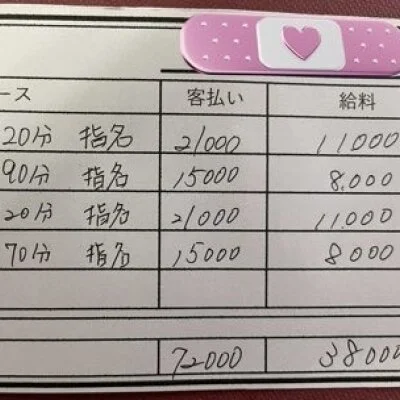 ース 客払い 給料
20分 指名 21000 11000
90分 指名 15000 8,000
20分 指名 21000 11,000
70分 指名 15000 8000
72000 38000